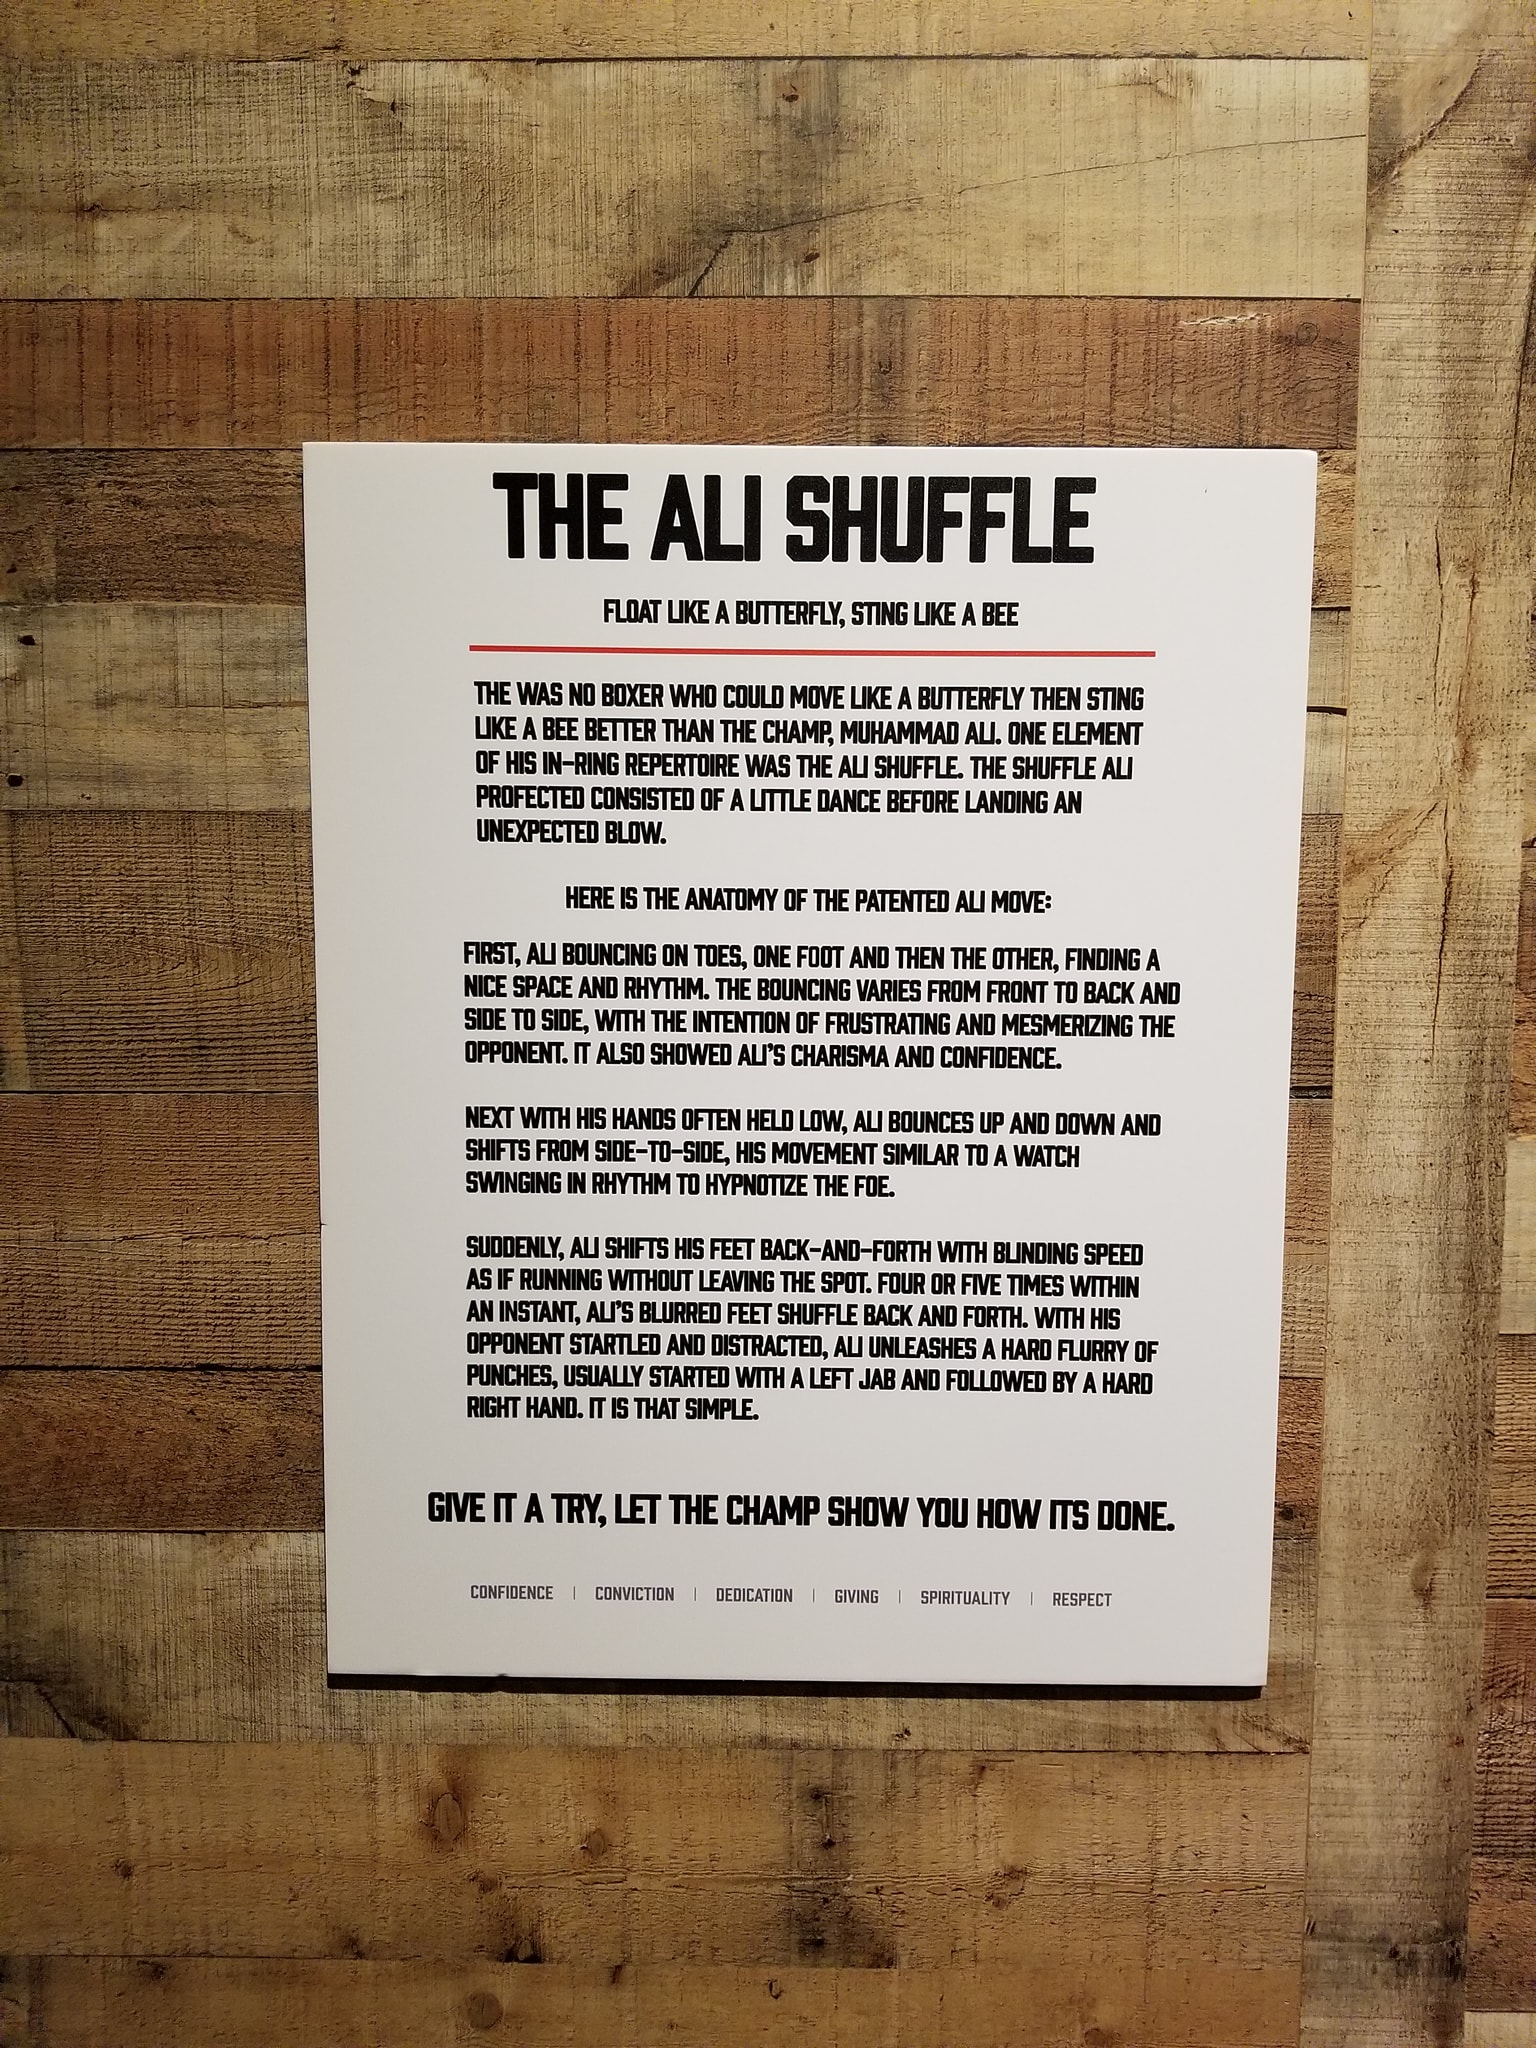 THE ALI SHUFFLE
FLOAT LIKE A BUTTERFLY, STING LIKE A BEE
THE WAS NO BOXER WHO COULD MOVE LIKE A BUTTERFLY THEN STING
LIKE A BEE BETTER THAN THE CHAMP, MUHAMMAD ALI. ONE ELEMENT
OF HIS IN-RING REPERTOIRE WAS THE ALI SHUFFLE. THE SHUFFLE ALI
PROFECTED CONSISTED OF A LITTLE DANCE BEFORE LANDING AN
UNEXPECTED BLOW.
HERE IS THE ANATOMY OF THE PATENTED ALI MOVE:
FIRST, ALI BOUNCING ON TOES, ONE FOOT AND THEN THE OTHER, FINDING A
NICE SPACE AND RHYTHM. THE BOUNCING VARIES FROM FRONT TO BACK AND
SIDE TO SIDE, WITH THE INTENTION OF FRUSTRATING AND MESMERIZING THE
OPPONENT. IT ALSO SHOWED ALI'S CHARISMA AND CONFIDENCE.
NEXT WITH HIS HANDS OFTEN HELD LOW, ALI BOUNCES UP AND DOWN AND
SHIFTS FROM SIDE-TO-SIDE, HIS MOVEMENT SIMILAR TO A WATCH
SWINGING IN RHYTHM TO HYPNOTIZE THE FOE.
SUDDENLY, ALI SHIFTS HIS FEET BACK-AND-FORTH WITH BLINDING SPEED
AS IF RUNNING WITHOUT LEAVING THE SPOT. FOUR OR FIVE TIMES WITHIN
AN INSTANT, ALI'S BLURRED FEET SHUFFLE BACK AND FORTH. WITH HIS
OPPONENT STARTLED AND DISTRACTED, ALI UNLEASHES A HARD FLURRY OF
PUNCHES, USUALLY STARTED WITH A LEFT JAB AND FOLLOWED BY A HARD
RIGHT HAND. IT IS THAT SIMPLE.
GIVE IT A TRY, LET THE CHAMP SHOW YOU HOW ITS DONE.
CONFIDENCE | CONVICTION | DEDICATION | GIVING | SPIRITUALITY | RESPECT